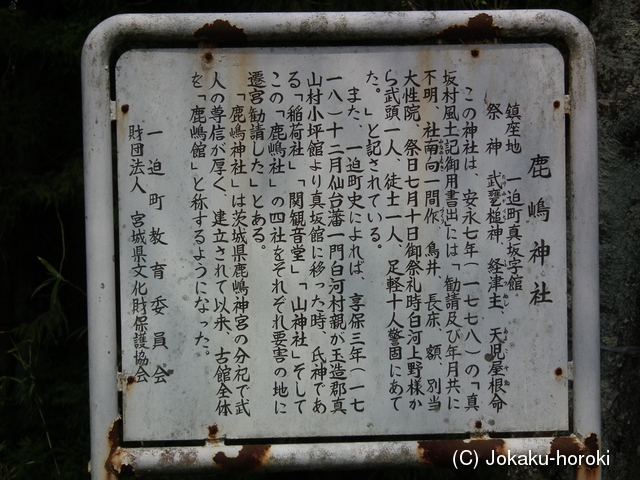 鹿嶋神社
鎮座地　一迫町真坂字館
祭　神　武甕槌神、経津主、天児屋根命
この神社は、安永七年（一七七八）の「真
坂村風土記御用書出には「勧請及び年月共に
不明、社南向一間作、鳥井、長床、額、別当
大性院、祭日七月十日御祭礼時白河上野様か
ら武頭一人、徒士一人、足軽十人警固にあて
た。」と記されている。
また、一迫町史によれば、享保三年（一七
一八）十二月仙台藩一門白河村親が玉造郡真
山村小坪館より真坂館に移った時、氏神であ
る「稲荷社」「関観音堂」「山神社」そして
この「鹿嶋社」の四社をそれぞれ要害の地に
遷宮勧請した」とある。
「鹿嶋神社」は茨城県鹿嶋神宮の分祀で武
人の尊信が厚く、建立されて以来、古館全体
を「鹿嶋館」と称するようになった。
一迫町教育委員会
財団法人　宮城県文化財保護協会
(C) Jokaku-horoki